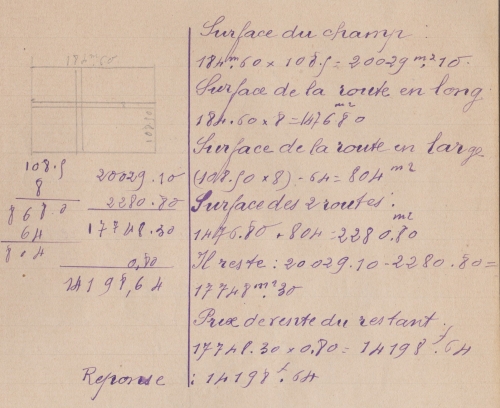 184m.60
108.50
108.5
8
868.0
64
804
20029.10
2280.80
17748.30
0,80
14198,64
Réponse
Surface du champ :
184m.60 x 108.5 = 20029m².10
Surface de la route en long
184.60 x 8 = 1476m²80
Surface de la route en large
(108.50 x 8) - 64 = 804 m²
Surface des 2 routes :
1476.80 + 804 = 2280m².80
Il reste : 20029.10 - 2280.80 =
17748m².30
Prix de vente du restant :
17748.30 x 0.80 = 14198f.64
: 14198f.64